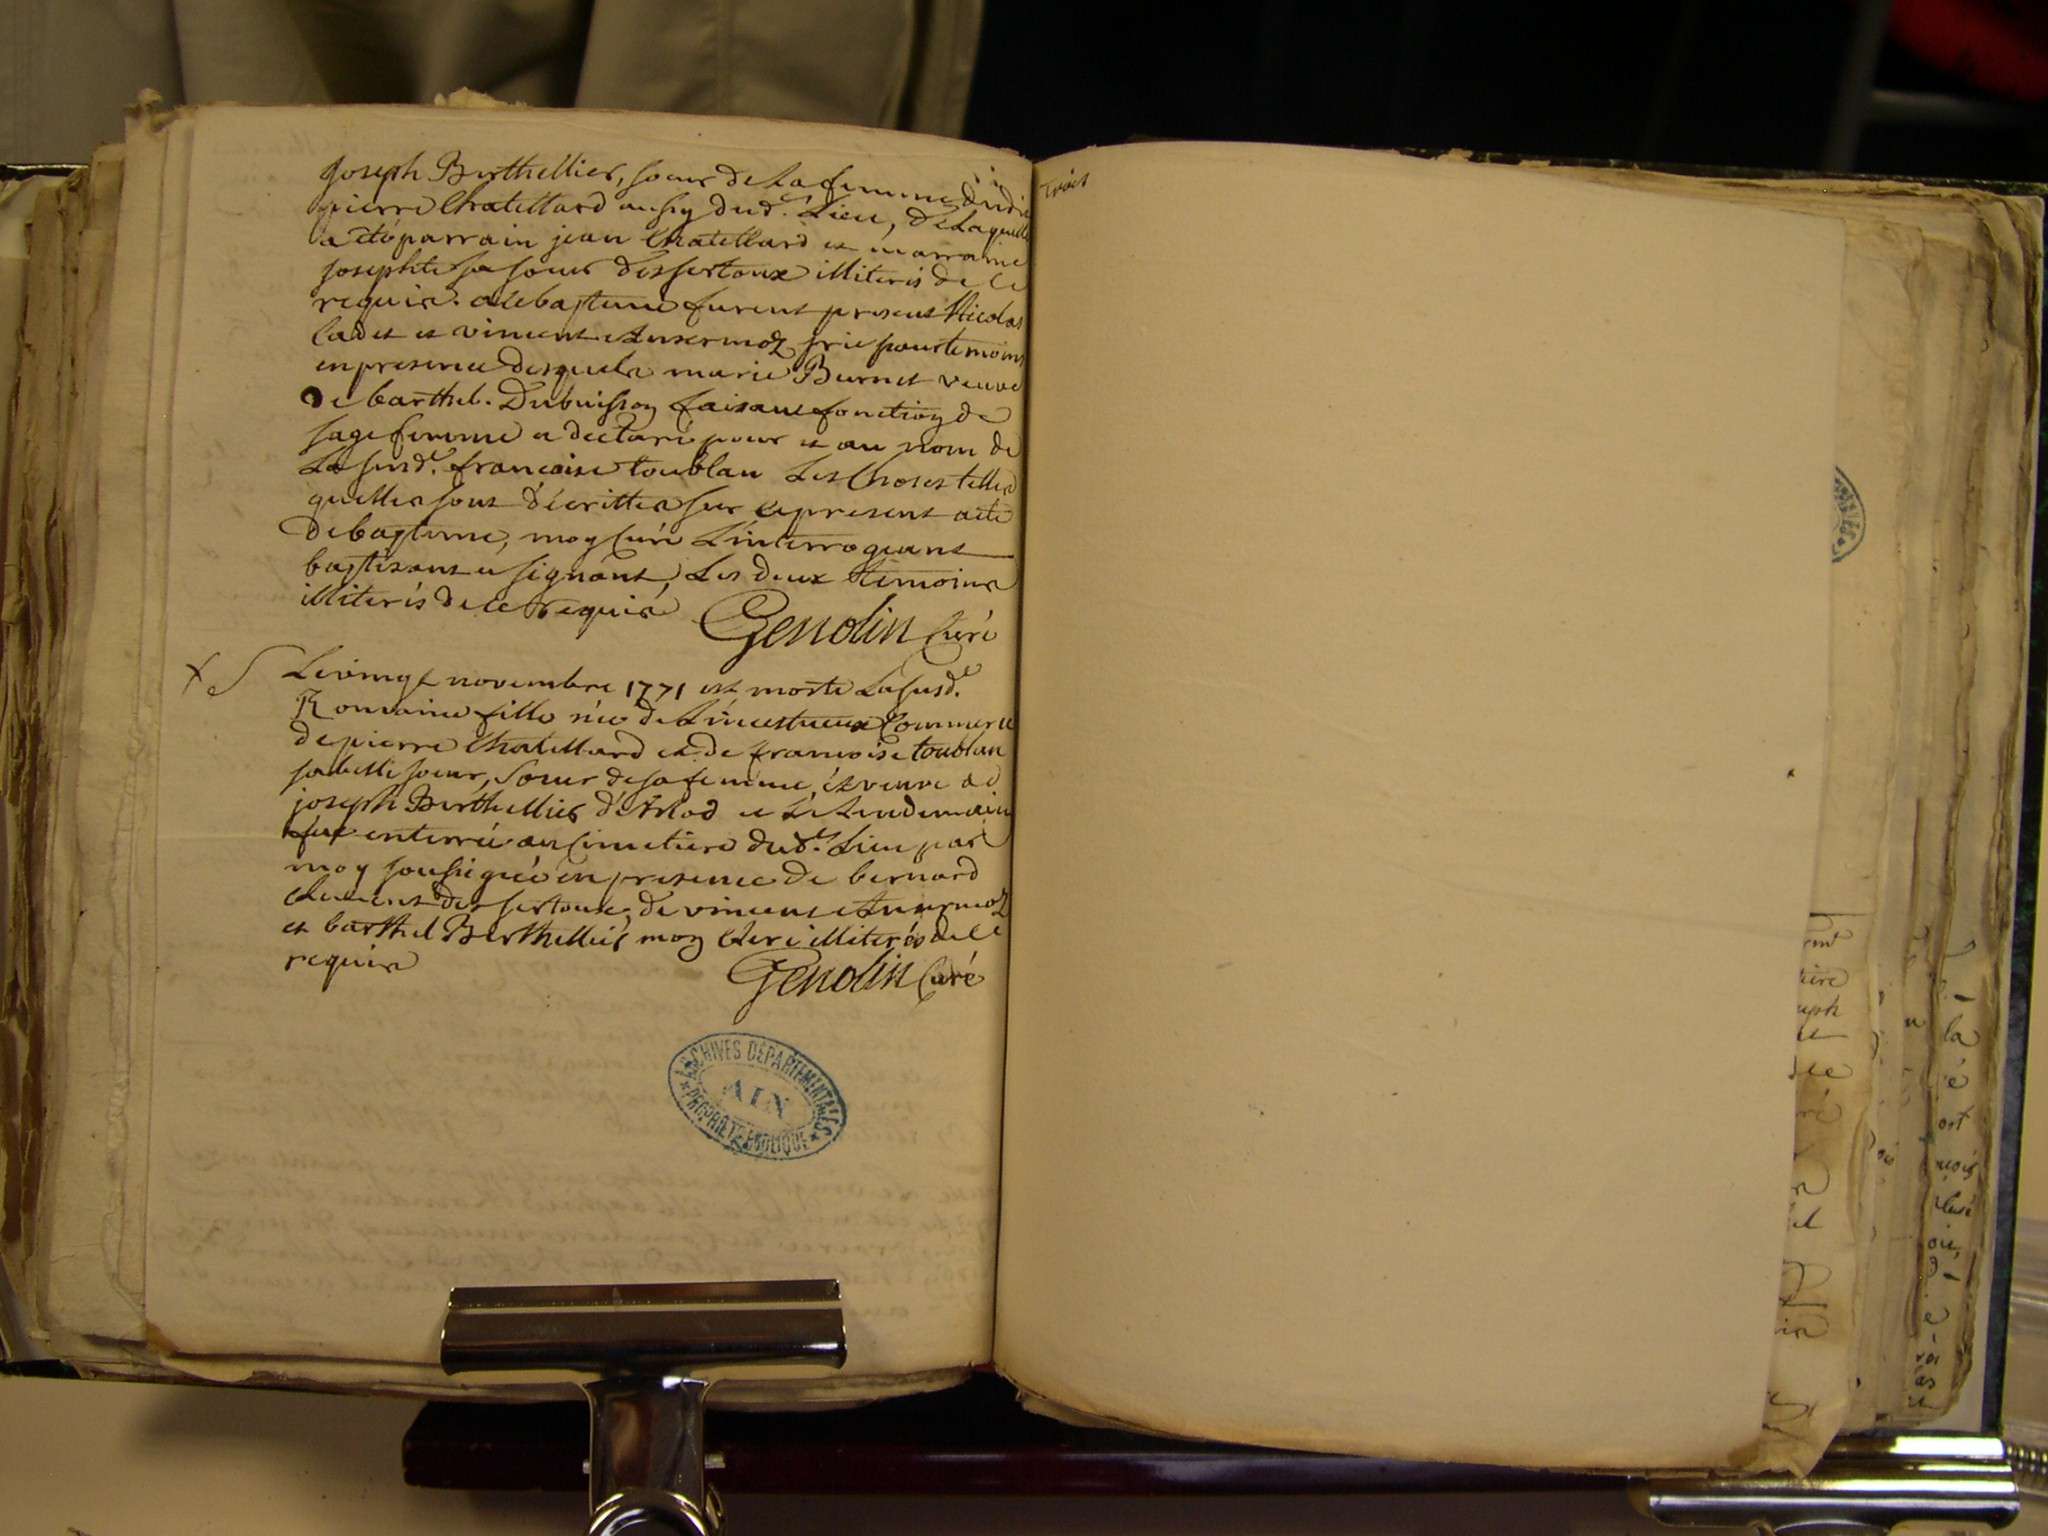 joseph Berthellier, soeur de la femme dudit
pierre Chatellard aussy dud.t Lieu, de Laquelle
a été parrain jean Chatellard et marraine
josephte sa soeur dessertoux illiterés de ce
requis. a ce bapteme furent presens Nicolas
Cadet et vincent Ansermoz prié pour temoins
en presence desquels marie Burnet veuve
de barthel. Dubuisson faisant fonction de
sage femme a declaré pour et au nom de
La susd.e francoise toublan Les Choses telles
quelles sont décrittes sur le present acte
de bapteme, moy Curé L'interrogeant
baptisant et signant, Les deux temoins
illiterés de ce requis
Genolin Curé
Le vingt novembre 1771 est morte La susd.e
Romaine fille née de L'incestueux Commerce
de pierre Chatellard et de francoise toublan
sa belle soeur, soeur de sa femme, et veuve de
joseph Berthellier d'Arlod et Le Lendemain
fut enterrée au Cimetiere dud.t Lieu par
moy soussigné en presence de bernard
Clement dessertoux, de vincent Ansermoz
et barthel Berthellier moy Curé illiterés de ce
requis
Genolin Curé
ARCHIVES DÉPARTEMENTALES
AIN
PROPRIÉTÉ PUBLIQUE